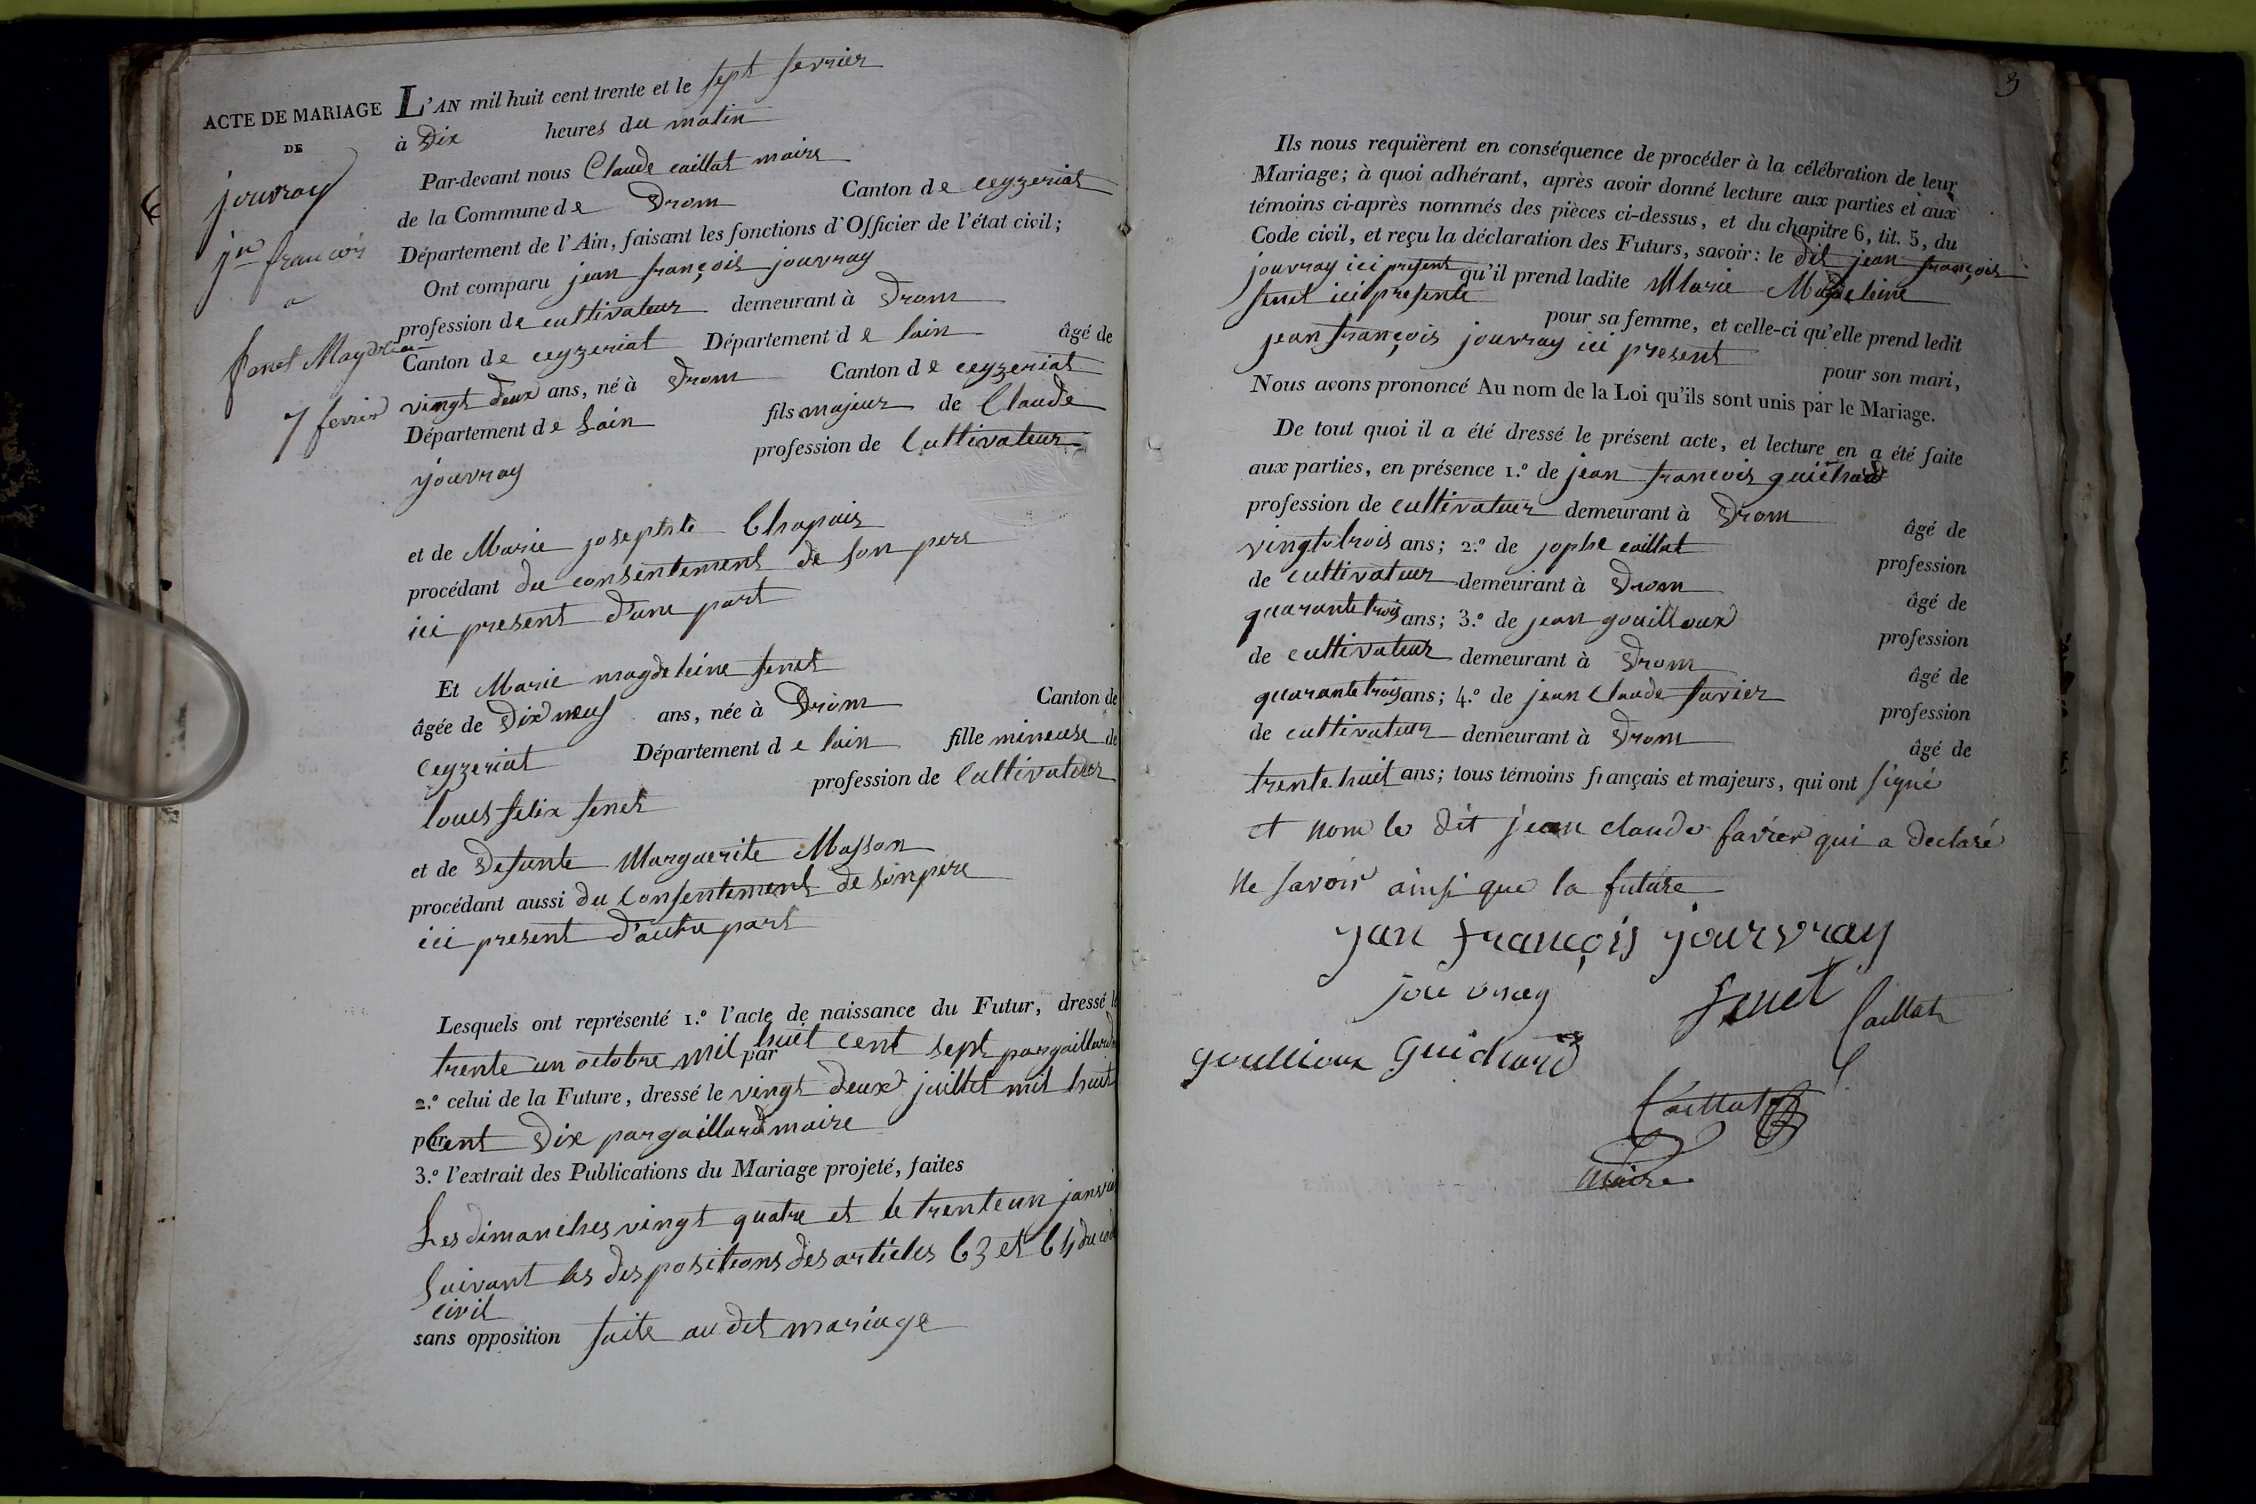 ACTE DE MARIAGE
DE
jouvray
jn francois
a
fenet Magdelei
7 fevrier
L'AN mil huit cent trente et le sept fevrier
à Dix heures du matin
Par-devant nous Claude caillat maire
de la Commune de Drom Canton de ceyzeriat
Département de l'Ain, faisant les fonctions d'Officier de l'état civil;
Ont comparu jean françois jouvray
profession de cultivateur demeurant à Drom
Canton de ceyzeriat Département de lain âgé de
vingt deux ans, né à Drom Canton de ceyzeriat
Département de Lain fils majeur de Claude
jouvray profession de Cultivateur
et de Marie josephte Chapuis
procédant du consentement de son pere
ici present d'une part
Et Marie magdeleine fenet
âgée de Dix neuf ans, née à Drom Canton de
Ceyzeriat Département de lain fille mineuse de
louis felix fenet profession de Cultivateur
et de Defunte Marguerite Masson
procédant aussi du Consentement de son pere
ici present d'autre part
Lesquels ont représenté 1.º l'acte de naissance du Futur, dressé le
trente un octobre mil huit cent sept par gaillard
par
2.º celui de la Future, dressé le vingt deux juillet mil huit
par Cent Dix par gaillard maire
3.º l'extrait des Publications du Mariage projeté, faites
Les dimanches vingt quatre et le trente un janvier
Suivant les dispositions des articles 63 et 64 du code
civil
sans opposition faite au dit mariage
3
Ils nous requièrent en conséquence de procéder à la célébration de leur
Mariage; à quoi adhérant, après avoir donné lecture aux parties et aux
témoins ci-après nommés des pièces ci-dessus, et du chapitre 6, tit. 5, du
Code civil, et reçu la déclaration des Futurs, savoir: le dit jean françois
jouvray ici present qu'il prend ladite Marie Magdeleine
fenet ici presente pour sa femme, et celle-ci qu'elle prend ledit
jean françois jouvray ici present pour son mari,
Nous avons prononcé Au nom de la Loi qu'ils sont unis par le Mariage.
De tout quoi il a été dressé le présent acte, et lecture en a été faite
aux parties, en présence 1.º de jean francois guichard
profession de cultivateur demeurant à Drom âgé de
vingt trois ans; 2.º de jophe caillat profession
de cultivateur demeurant à Drom âgé de
quarante trois ans; 3.º de jean gouilloux profession
de cultivateur demeurant à Drom âgé de
quarante trois ans; 4.º de jean Claude favier profession
de cultivateur demeurant à Drom âgé de
trente huit ans; tous témoins français et majeurs, qui ont signé
et nom le dit jean claude favier qui a declaré
ne savoir ainsi que la future
jan françois jourvray
jouvray fenet Caillat
goullioux Guichard
Caillat
maire